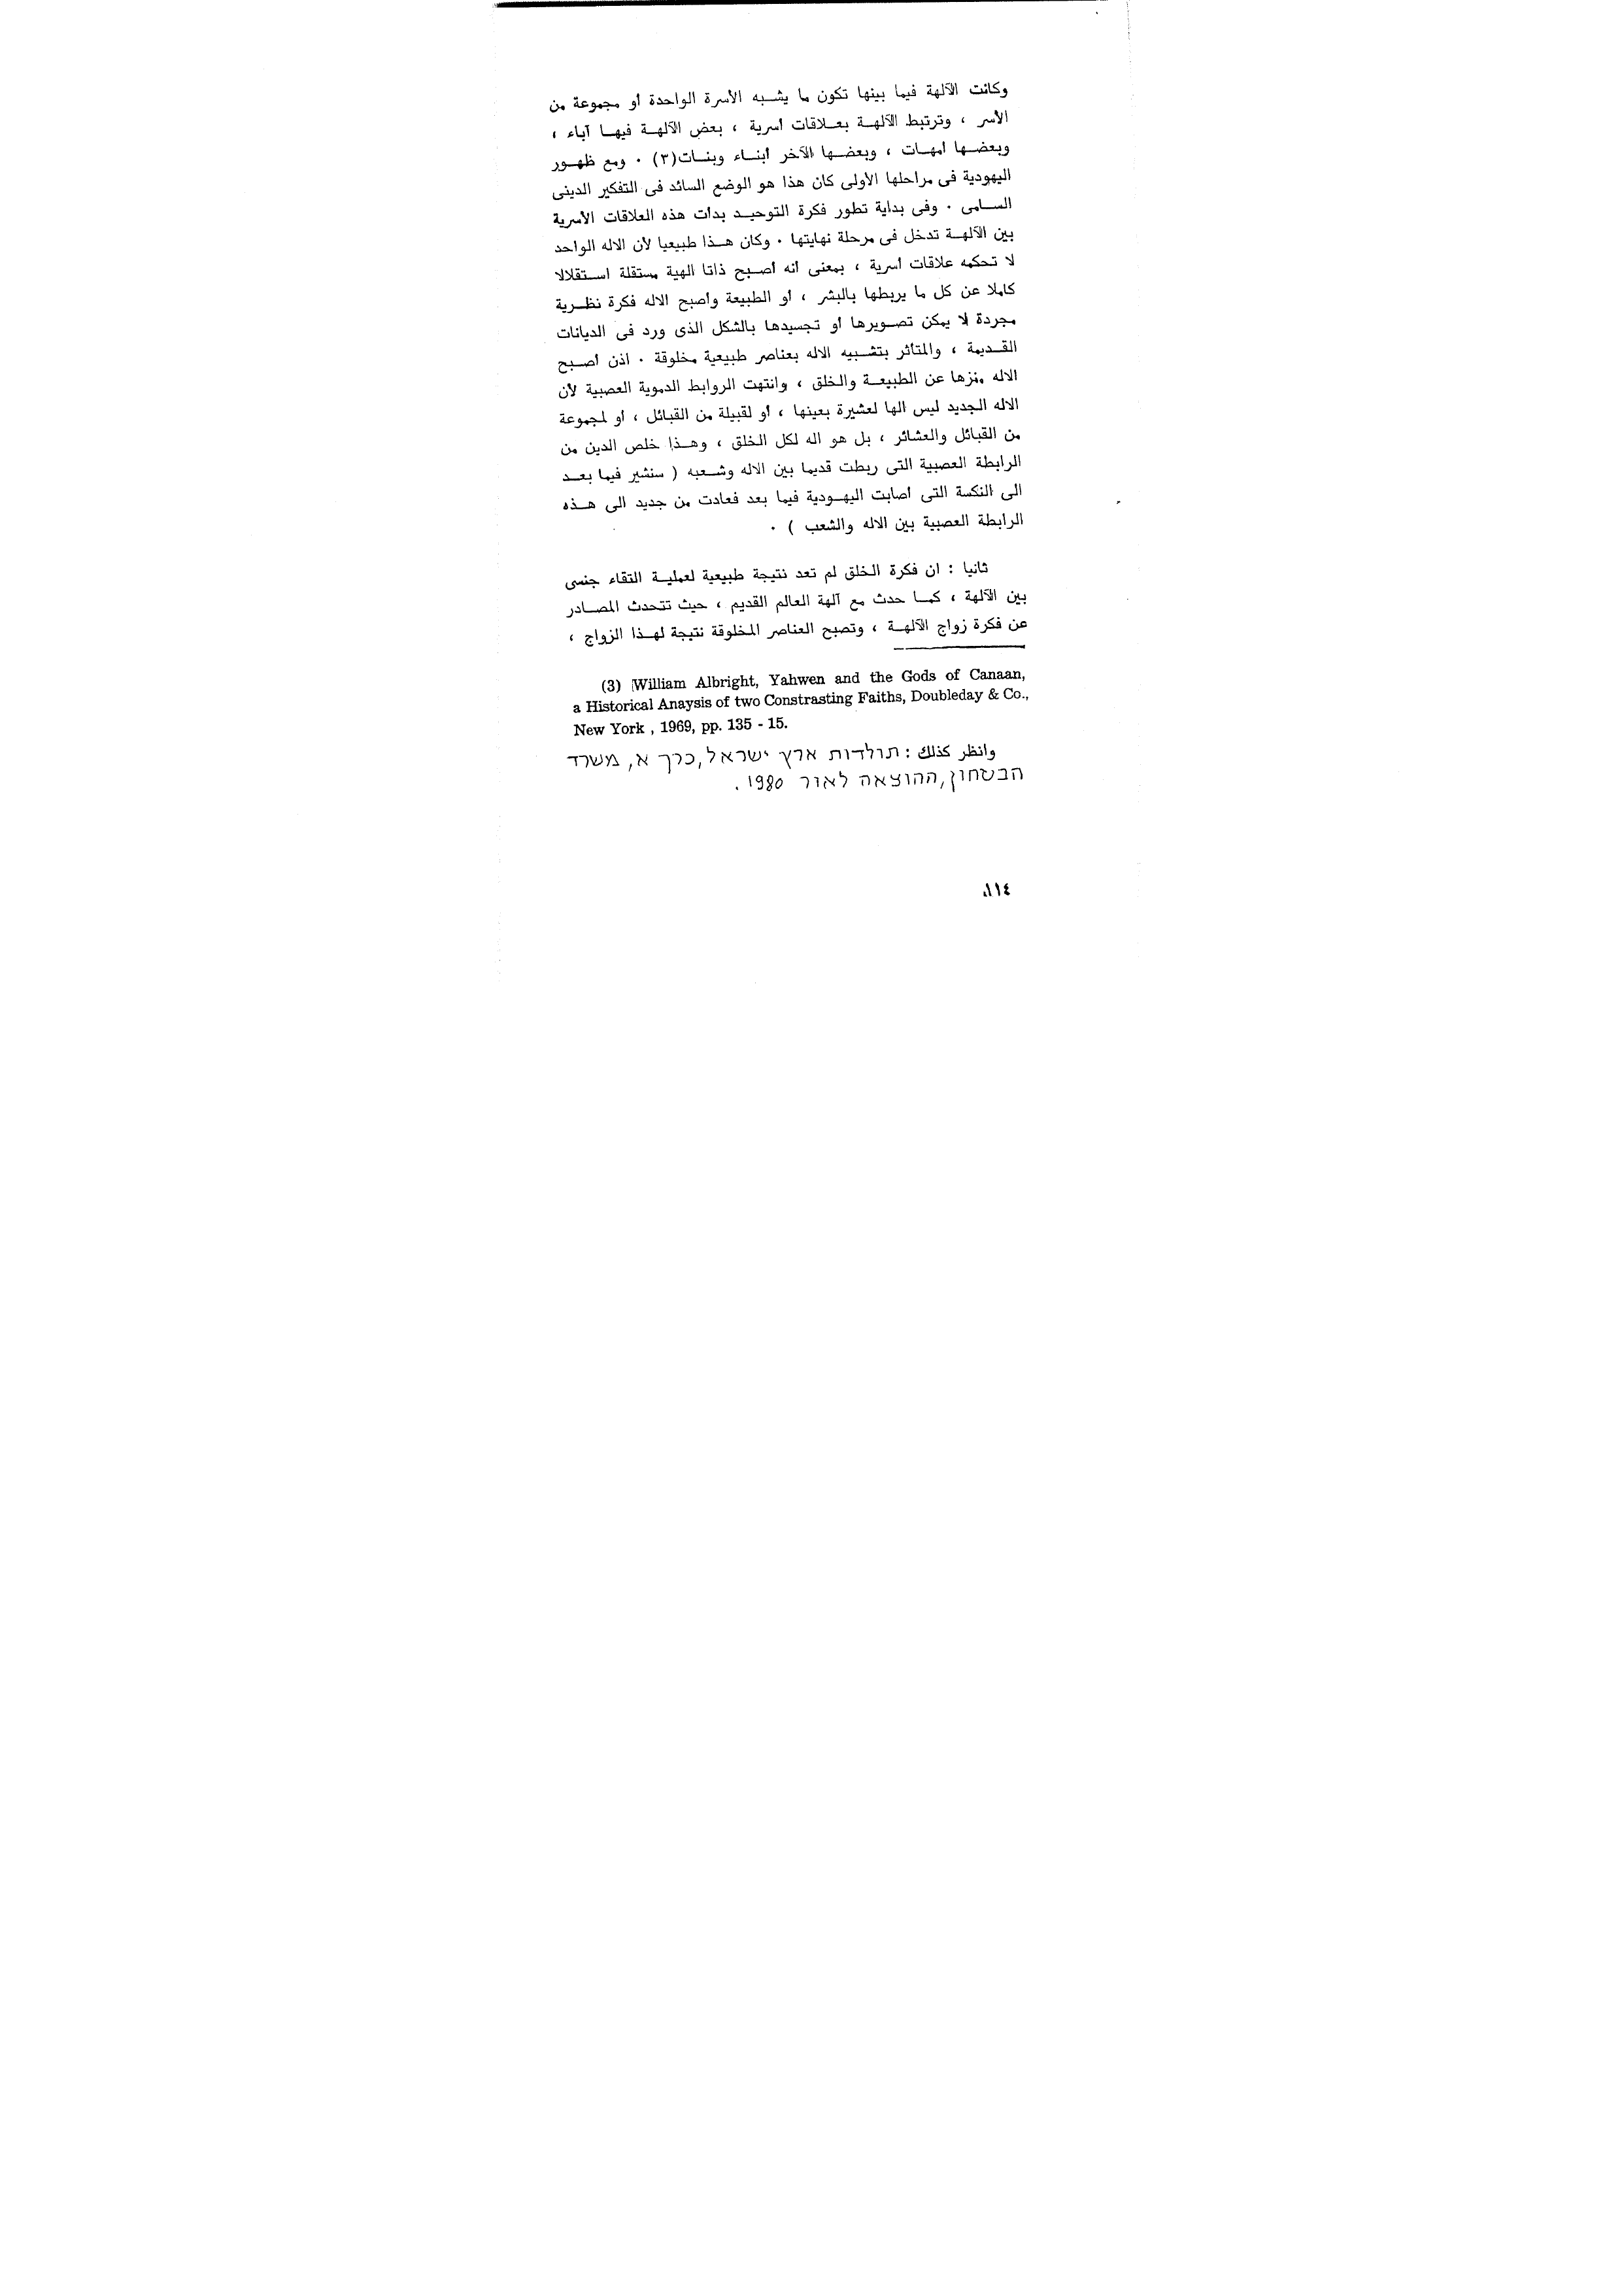 وكانت الآلهة فيما بينها تكون ما يشبه الأسرة الواحدة أو مجموعة من
الأسر ، وترتبط الآلهة بعلاقات أسرية ، بعض الآلهة فيها آباء ،
وبعضها أمهات ، وبعضها الآخر أبناء وبنات(٣) . ومع ظهور
اليهودية فى مراحلها الأولى كان هذا هو الوضع السائد فى التفكير الدينى
السامى . وفى بداية تطور فكرة التوحيد بدأت هذه العلاقات الأسرية
بين الآلهة تدخل فى مرحلة نهايتها . وكان هذا طبيعيا لأن الاله الواحد
لا تحكمه علاقات أسرية ، بمعنى أنه أصبح ذاتا الهية مستقلة استقلالا
كاملا عن كل ما يربطها بالبشر ، أو الطبيعة وأصبح الاله فكرة نظرية
مجردة لا يمكن تصويرها أو تجسيدها بالشكل الذى ورد فى الديانات
القديمة ، والمتأثر بتشبيه الاله بعناصر طبيعية مخلوقة . اذن أصبح
الاله منزها عن الطبيعة والخلق ، وانتهت الروابط الدموية العصبية لأن
الاله الجديد ليس الها لعشيرة بعينها ، أو لقبيلة من القبائل ، أو لمجموعة
من القبائل والعشائر ، بل هو اله لكل الخلق ، وهذا خلص الدين من
الرابطة العصبية التى ربطت قديما بين الاله وشعبه ( سنشير فيما بعد
الى النكسة التى أصابت اليهودية فيما بعد فعادت من جديد الى هذه
الرابطة العصبية بين الاله والشعب ) .
ثانيا : ان فكرة الخلق لم تعد نتيجة طبيعية لعملية التقاء جنسى
بين الآلهة ، كما حدث مع آلهة العالم القديم ، حيث تتحدث المصادر
عن فكرة زواج الآلهة ، وتصبح العناصر المخلوقة نتيجة لهذا الزواج ،
(3) William Albright, Yahwen and the Gods of Canaan,
a Historical Anaysis of two Constrasting Faiths, Doubleday & Co.,
New York , 1969, pp. 135 - 15.
وانظر كذلك : תולדות ארץ ישראל, כרך א, משרד
הבטחון, ההוצאה לאור 1980.
١١٤